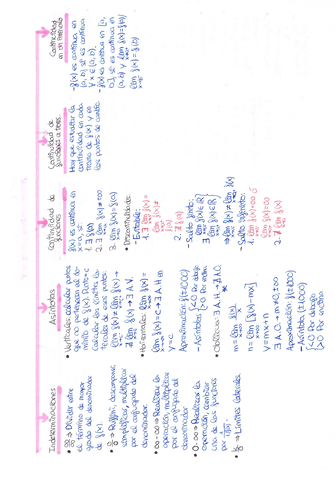 Indeterminaciones
• ∞/∞ ⇒ Dividir entre
el término de mayor
grado del denominador
de f(x).
• 0/0 ⇒ Ruffini, descomponer,
simplificar, multiplicar
por el conjugado del
denominador.
• ∞-∞ ⇒ Realizar la
operación, multiplicar
por el conjugado del
denominador.
• 0·∞ ⇒ Realizar la
operación, cambiar
una de las funciones
por
⇒ Límites laterales.
Asíntotas
• Verticales: calcular puntos
que no pertenecen al do-
minio de f(x).
Calcular los límites la-
terales de esos puntos:
• Horizontales:
lim f(x)=C → ∃ A.H en
y=C
Aproximación: f(±1000)
- Asíntotas <0 Por debajo
>0 Por encima
• Oblicuas: ∄ A.H → ∃ A.O
m=lim f(x)/x
n=lim [f(x)-mx]
y=mx+n
∃ A.O → m≠0, ±∞
Aproximación: f(±1000)
- Asíntotas (±1000)
<0 Por debajo
>0 Por encima
Continuidad de
funciones
f(x) es continua en
x=a, si:
1. ∃ f(a)
2. ∃ lim f(x) ≠ ±∞
3. lim f(x)=f(a)
• Discontinuidad:
- Evitable:
1. ∃ lim f(x) ≠
f(a)
2. ∄ f(a)
- Salto finito:
- Salto infinito:
1. lim f(x)=∞ ó
lim f(x)=∞
2. ∄ lim f(x)
Continuidad de
funciones a trozos
Hay que estudiar la
continuidad en cada
tramo de f(x) y en
los puntos de corte.
Continuidad
en un intervalo
- f(x) es continua en
(a, b) si es continua
∀x∈(a, b).
- f(x) es continua en [a,
b], si es continua en
(a, b) y lim f(x)=f(a)
lim f(x)=f(b)